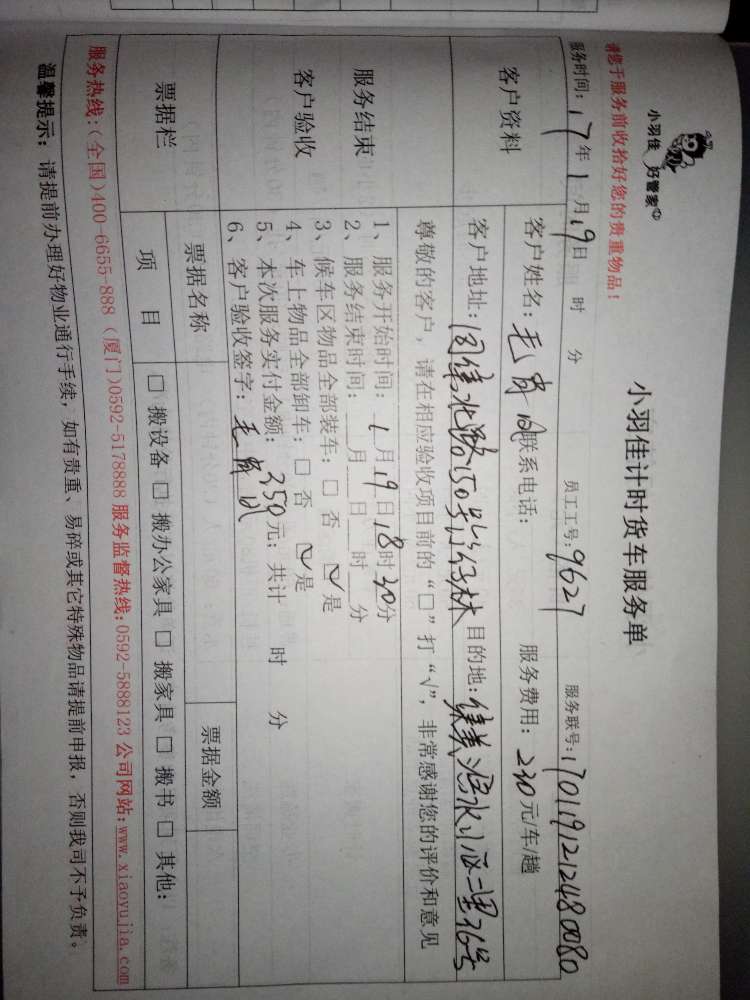 小羽佳 好管家
小羽佳计时货车服务单
请您于服务前收拾好您的贵重物品！
服务时间：17年1月19日 时 分 员工工号：9627 服务联号：1701191212480080
客户资料
客户姓名：毛 联系电话： 服务费用：230元/车/趟
客户地址：同集北路150号 目的地：集美 水小区二里26号
尊敬的客户，请在相应验收项目前的“□”打“√”，非常感谢您的评价和意见
服务结束
客户验收
1、服务开始时间：1月19日18时30分
2、服务结束时间： 月 日 时 分
3、候车区物品全部装车：□ 否 ☑ 是
4、车上物品全部卸车：□ 否 ☑ 是
5、本次服务实付金额：350元；共计 时 分
6、客户验收签字：毛
票据栏
票据名称 票据金额
项 目 □ 搬设备 □ 搬办公家具 □ 搬家具 □ 搬书 □ 其他：
服务热线：(全国)400-6655-888 (厦门)0592-5178888 服务监督热线：0592-5888123 公司网站：www.xiaoyujia.com
温馨提示：请提前办理好物业通行手续，如有贵重、易碎或其它特殊物品请提前申报，否则我司不予负责。